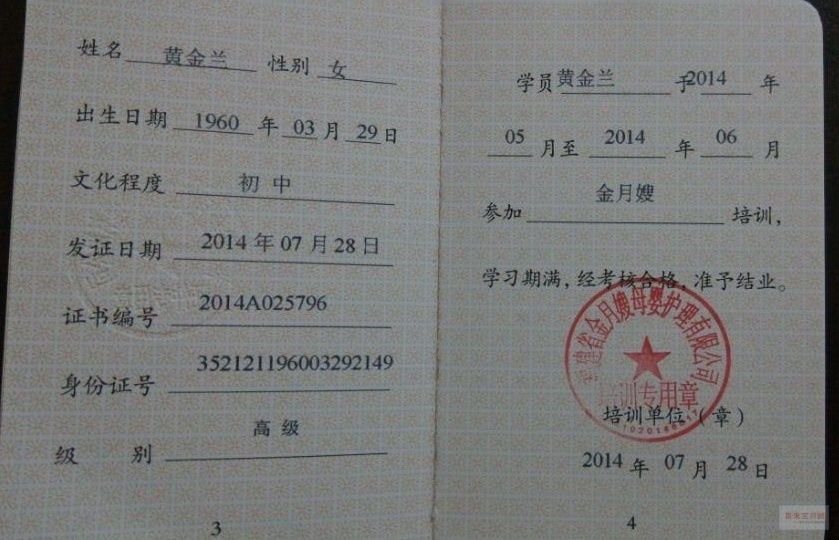 姓名 黄金兰 性别 女
出生日期 1960 年 03 月 29 日
文化程度 初中
发证日期 2014 年 07 月 28 日
证书编号 2014A025796
身份证号 352121196003292149
级别 高级
3
学员 黄金兰 于 2014 年
05 月至 2014 年 06 月
参加 金月嫂 培训，
学习期满，经考核合格，准予结业。
福建省金月嫂母婴护理有限公司
培训专用章
培训单位（章）
2014 年 07 月 28 日
4